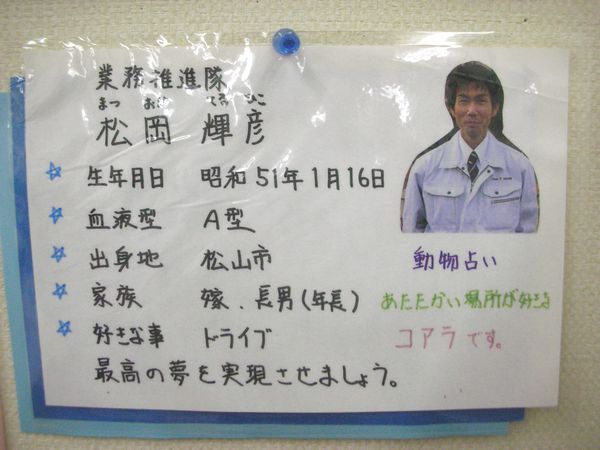 業務推進隊
まつ おか てる ひこ
松岡 輝彦
☆ 生年月日 昭和51年1月16日
☆ 血液型 A型
☆ 出身地 松山市
☆ 家族 嫁、長男(年長)
☆ 好きな事 ドライブ
最高の夢を実現させましょう。
動物占い
あたたかい場所が好きな
コアラです。